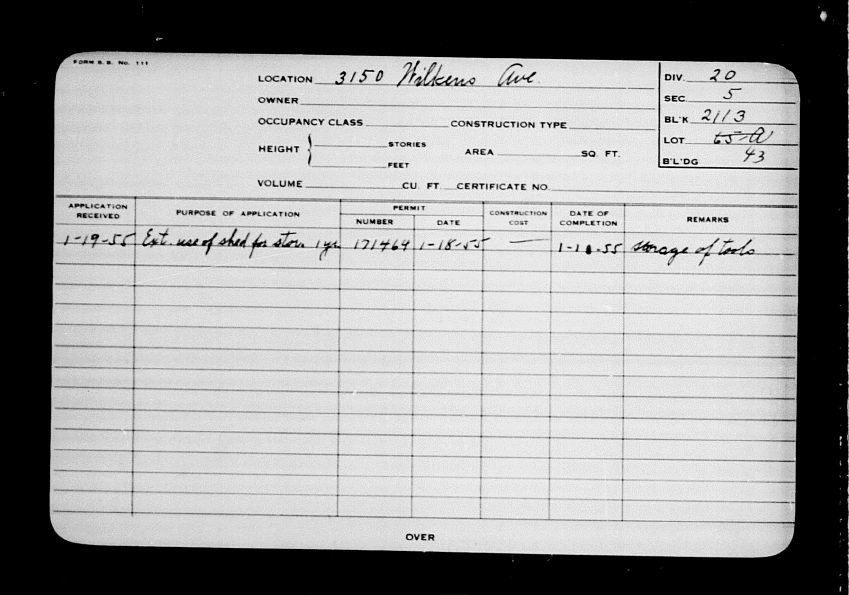 FORM S.B. No. 111
LOCATION 3150 Wilkens Ave.
DIV. 20
OWNER
SEC 5
OCCUPANCY CLASS CONSTRUCTION TYPE
BL'K 2113
HEIGHT } STORIES AREA SQ. FT.
LOT 65-A
FEET
B'L'DG 43
VOLUME CU. FT. CERTIFICATE NO.
APPLICATION RECEIVED PURPOSE OF APPLICATION PERMIT NUMBER DATE CONSTRUCTION COST DATE OF COMPLETION REMARKS
1-19-55 Ext. use of shed for stor. 1 yr. 171464 1-18-55 — 55 storage of tools
OVER